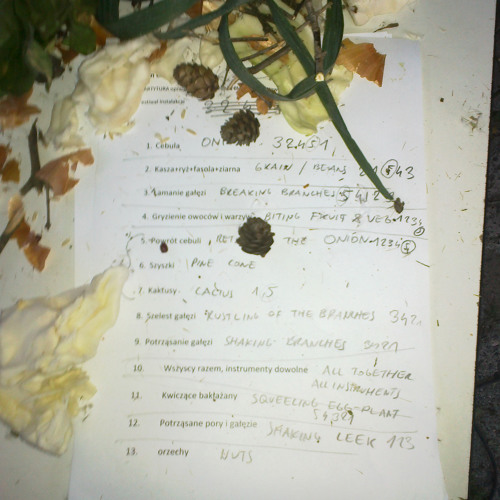 1. Cebula ON 32451
2. Kasza+ryż+fasola+ziarna GRAIN / BEANS 543
3. Łamanie gałęzi BREAKING BRANCHES
4. Gryzienie owoców i warzyw BITING FRUIT & VEG. 1234
5. Powrót cebuli THE ONION 1234
6. Szyszki PINE CONE
7. Kaktusy CACTUS 1,5
8. Szelest gałęzi RUSTLING OF THE BRANCHES
9. Potrząsanie gałęzi SHAKING BRANCHES
10. Wszyscy razem, instrumenty dowolne ALL TOGETHER
ALL INSTRUMENTS
11. Kwiczące bakłażany SQUEELING EGG-PLANT
12. Potrząsane pory i gałęzie SHAKING LEEK 123
13. orzechy NUTS